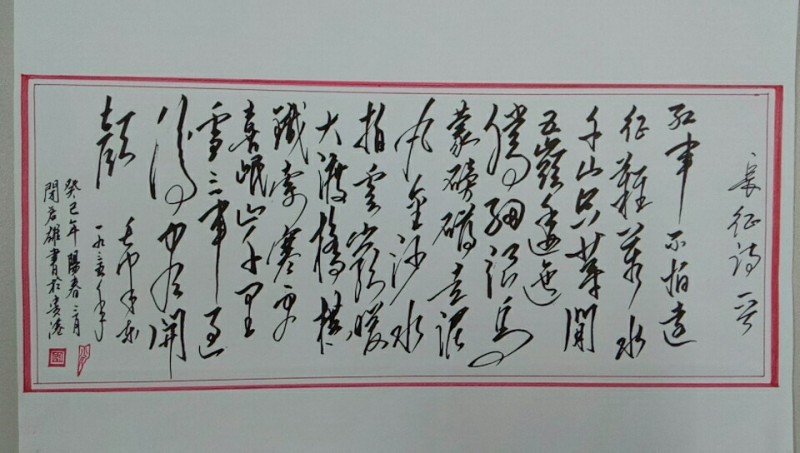 長征诗一首
红軍不怕遠
征難萬水
千山只等閒
五嶺逶迤
腾细浪烏
蒙磅礴走泥
丸金沙水
拍雲崖暖
大渡橋横
鐵索寒更
喜岷山千里
雪三軍過
後尽開
颜
一九三五年
癸巳年陽春三月
雄書於贵港